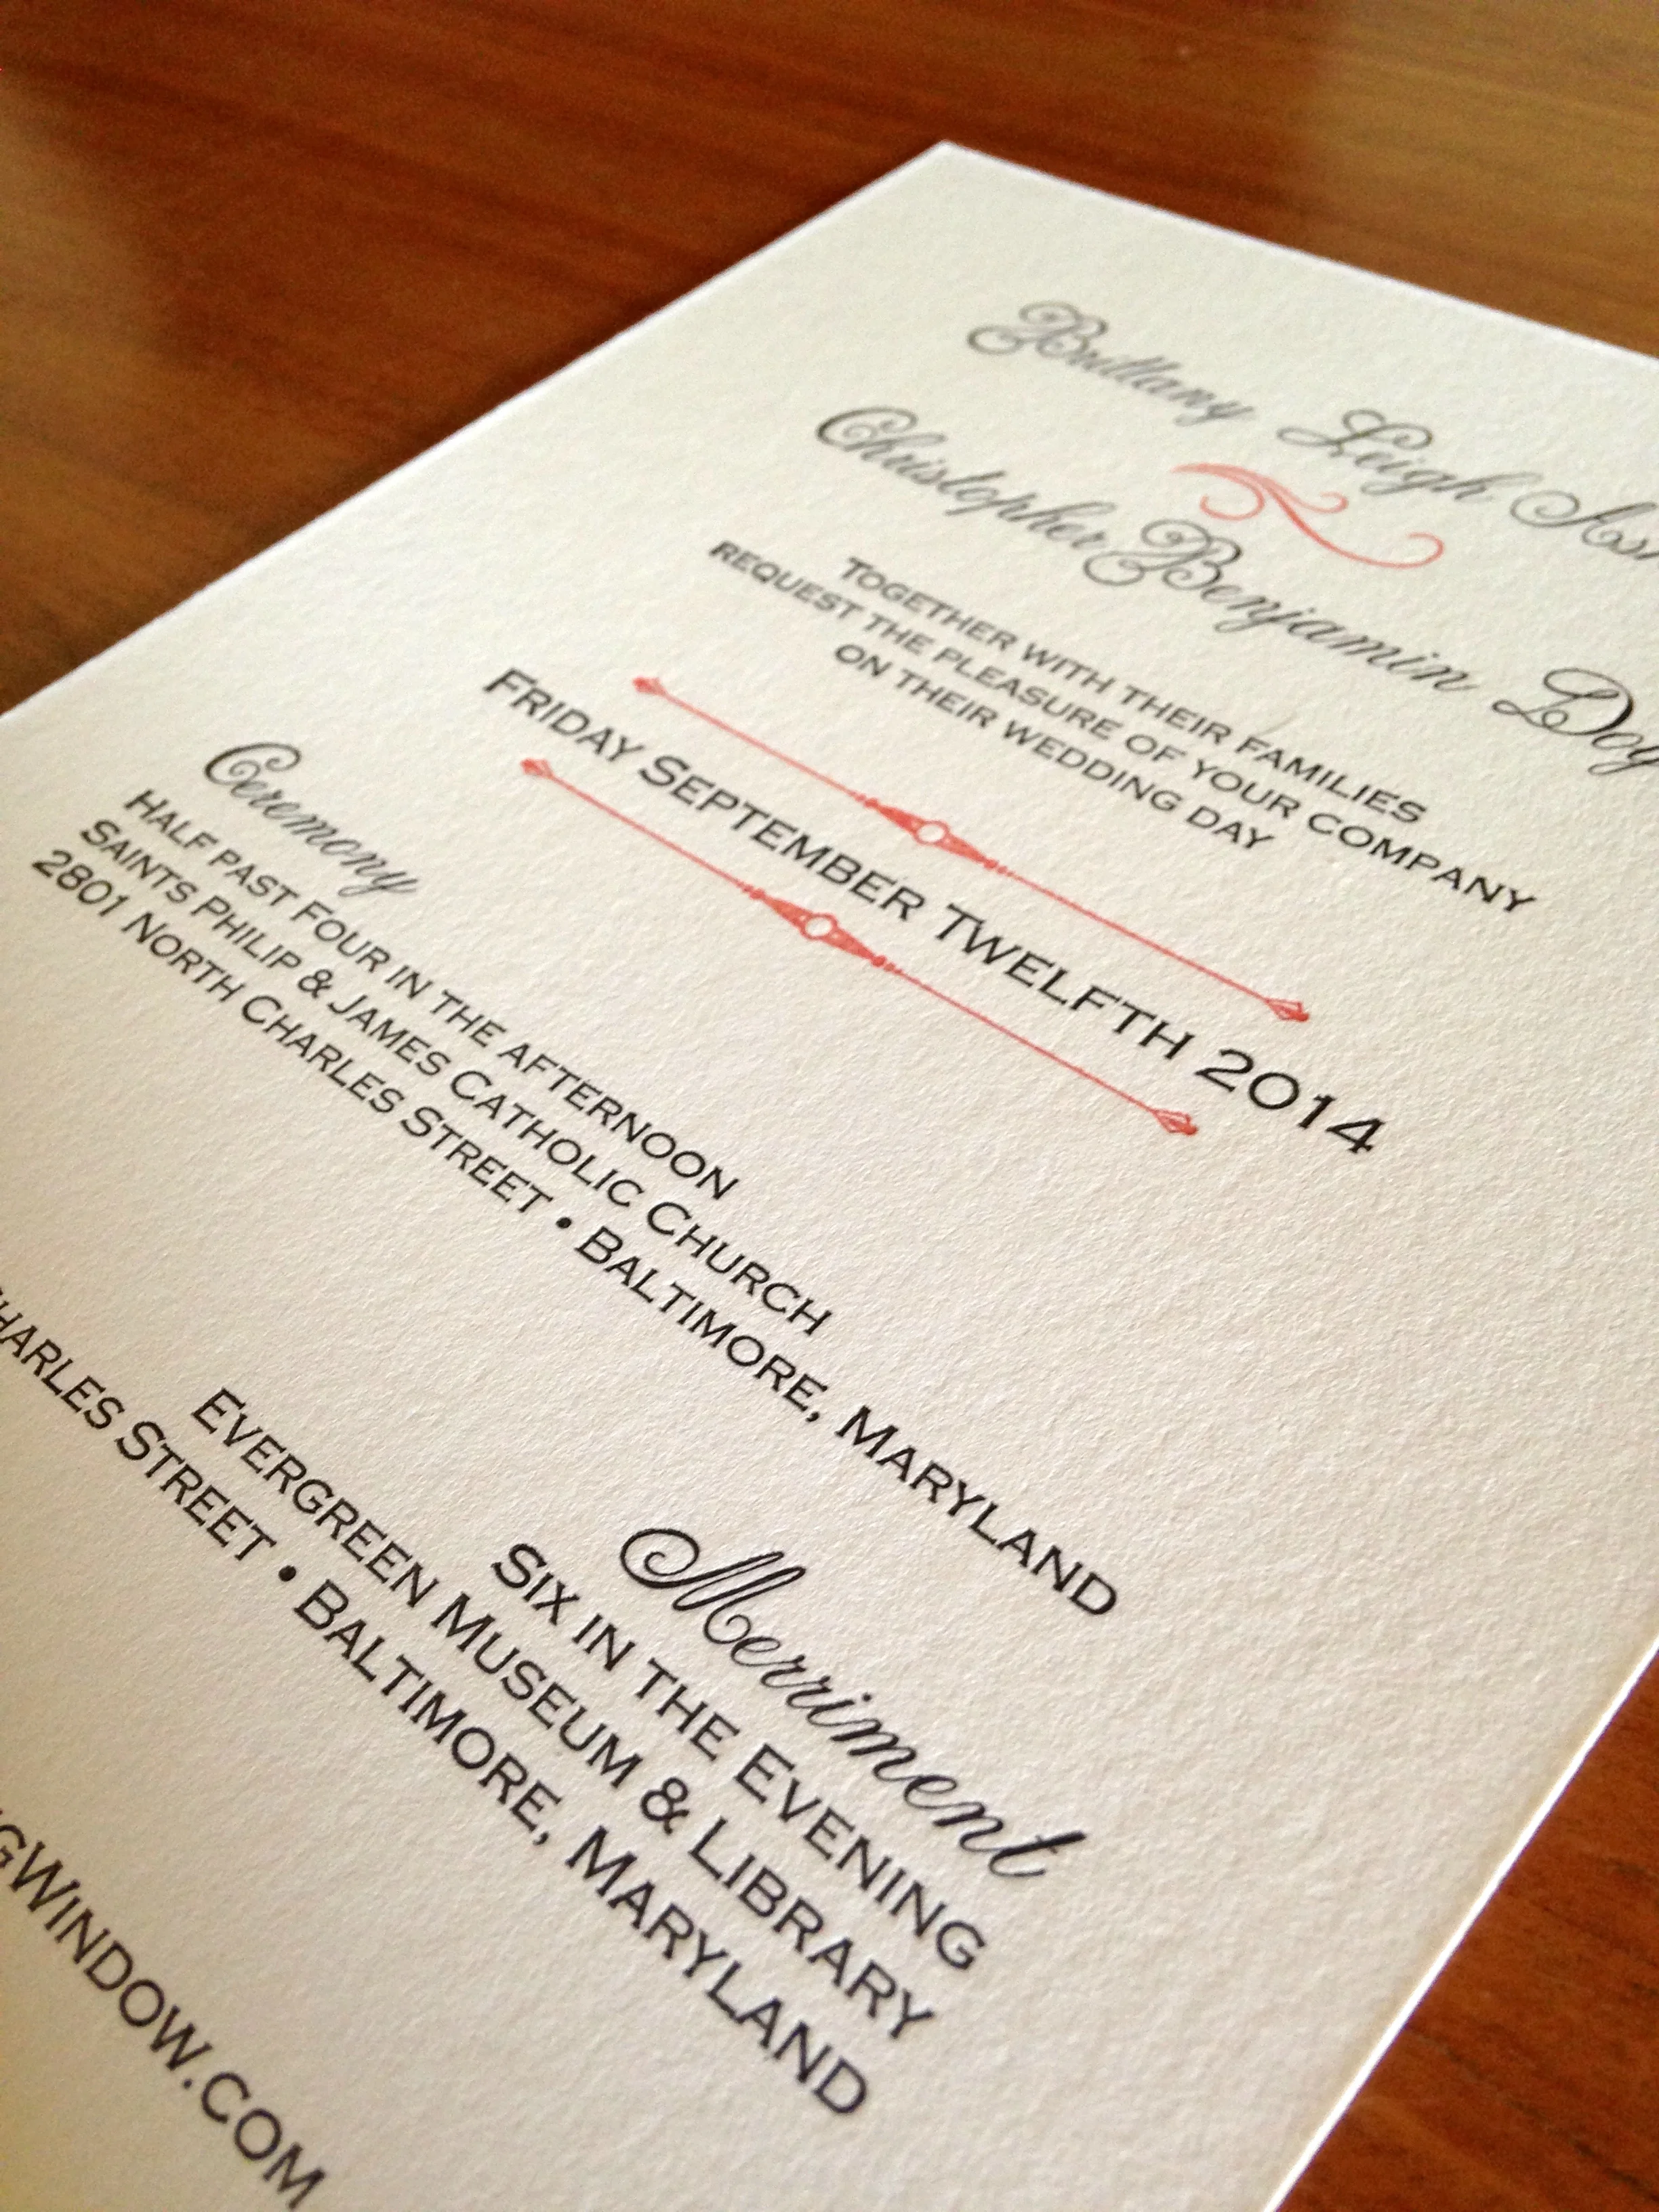 Brittany Leigh
Christopher Benjamin
TOGETHER WITH THEIR FAMILIES
REQUEST THE PLEASURE OF YOUR COMPANY
ON THEIR WEDDING DAY
FRIDAY SEPTEMBER TWELFTH 2014
Ceremony
HALF PAST FOUR IN THE AFTERNOON
SAINTS PHILIP & JAMES CATHOLIC CHURCH
2801 NORTH CHARLES STREET • BALTIMORE, MARYLAND
Merriment
SIX IN THE EVENING
EVERGREEN MUSEUM & LIBRARY
CHARLES STREET • BALTIMORE, MARYLAND
GWINDOW.COM